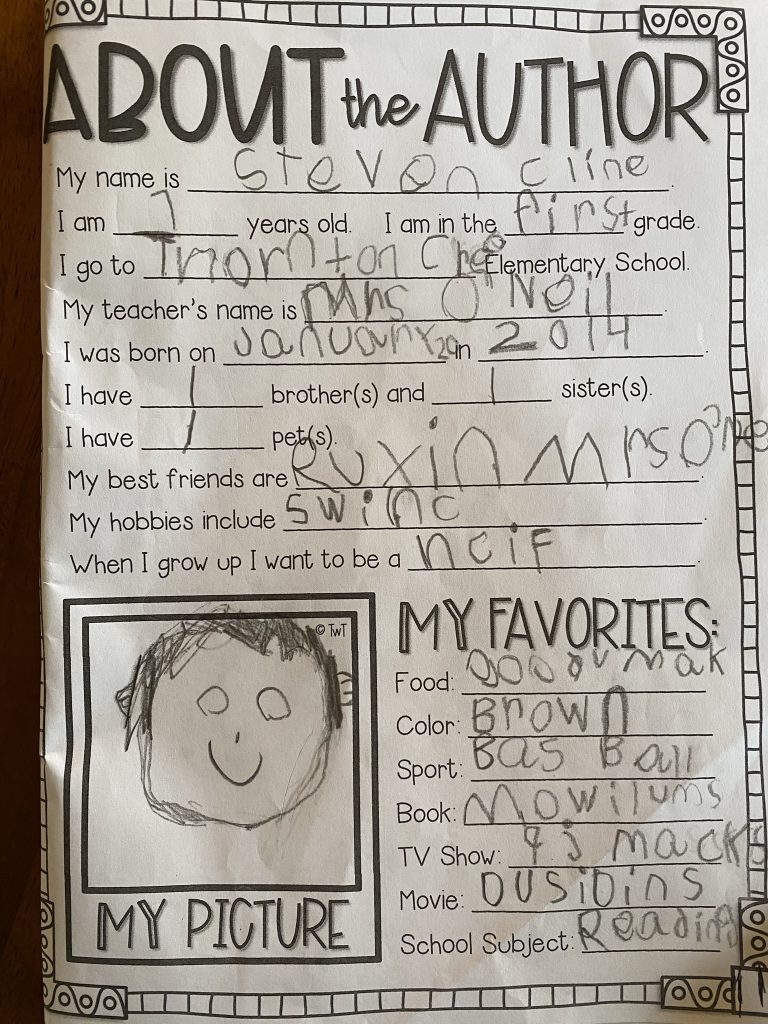 ABOUT the AUTHOR
My name is Stevon Cline.
I am 7 years old. I am in the first grade.
I go to Thornton Cree Elementary School.
My teacher's name is Mrs O'Neil.
I was born on January 29 in 2014.
I have 1 brother(s) and 1 sister(s).
I have 1 pet(s).
My best friends are Ruxin Mrs O'Ne.
My hobbies include swinc.
When I grow up I want to be a ncif.
© TwT
MY PICTURE
MY FAVORITES:
Food:
Color: Brown
Sport: Bas Ball
Book: Mowilums
TV Show: 9.J macks
Movie: Dusioins
School Subject: Reading